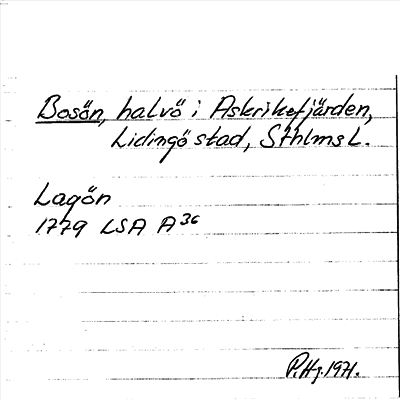 Bosön, halvö i Askrikefjärden,
Lidingö stad, Sthlms L.
Lagön
1779 LSA A36
P.Hj. 1971.